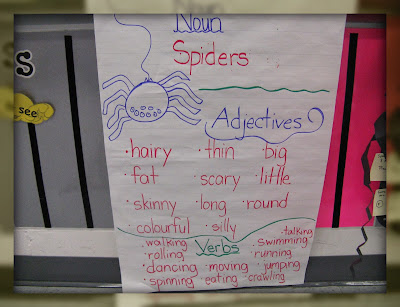 Noun
Spiders
Adjectives
· hairy · thin · big
· fat · scary · little
· skinny · long · round
· colourful · silly
· talking
· walking Verbs · swimming
· rolling · running
· dancing · moving · jumping
· spinning · eating · crawling
s
see